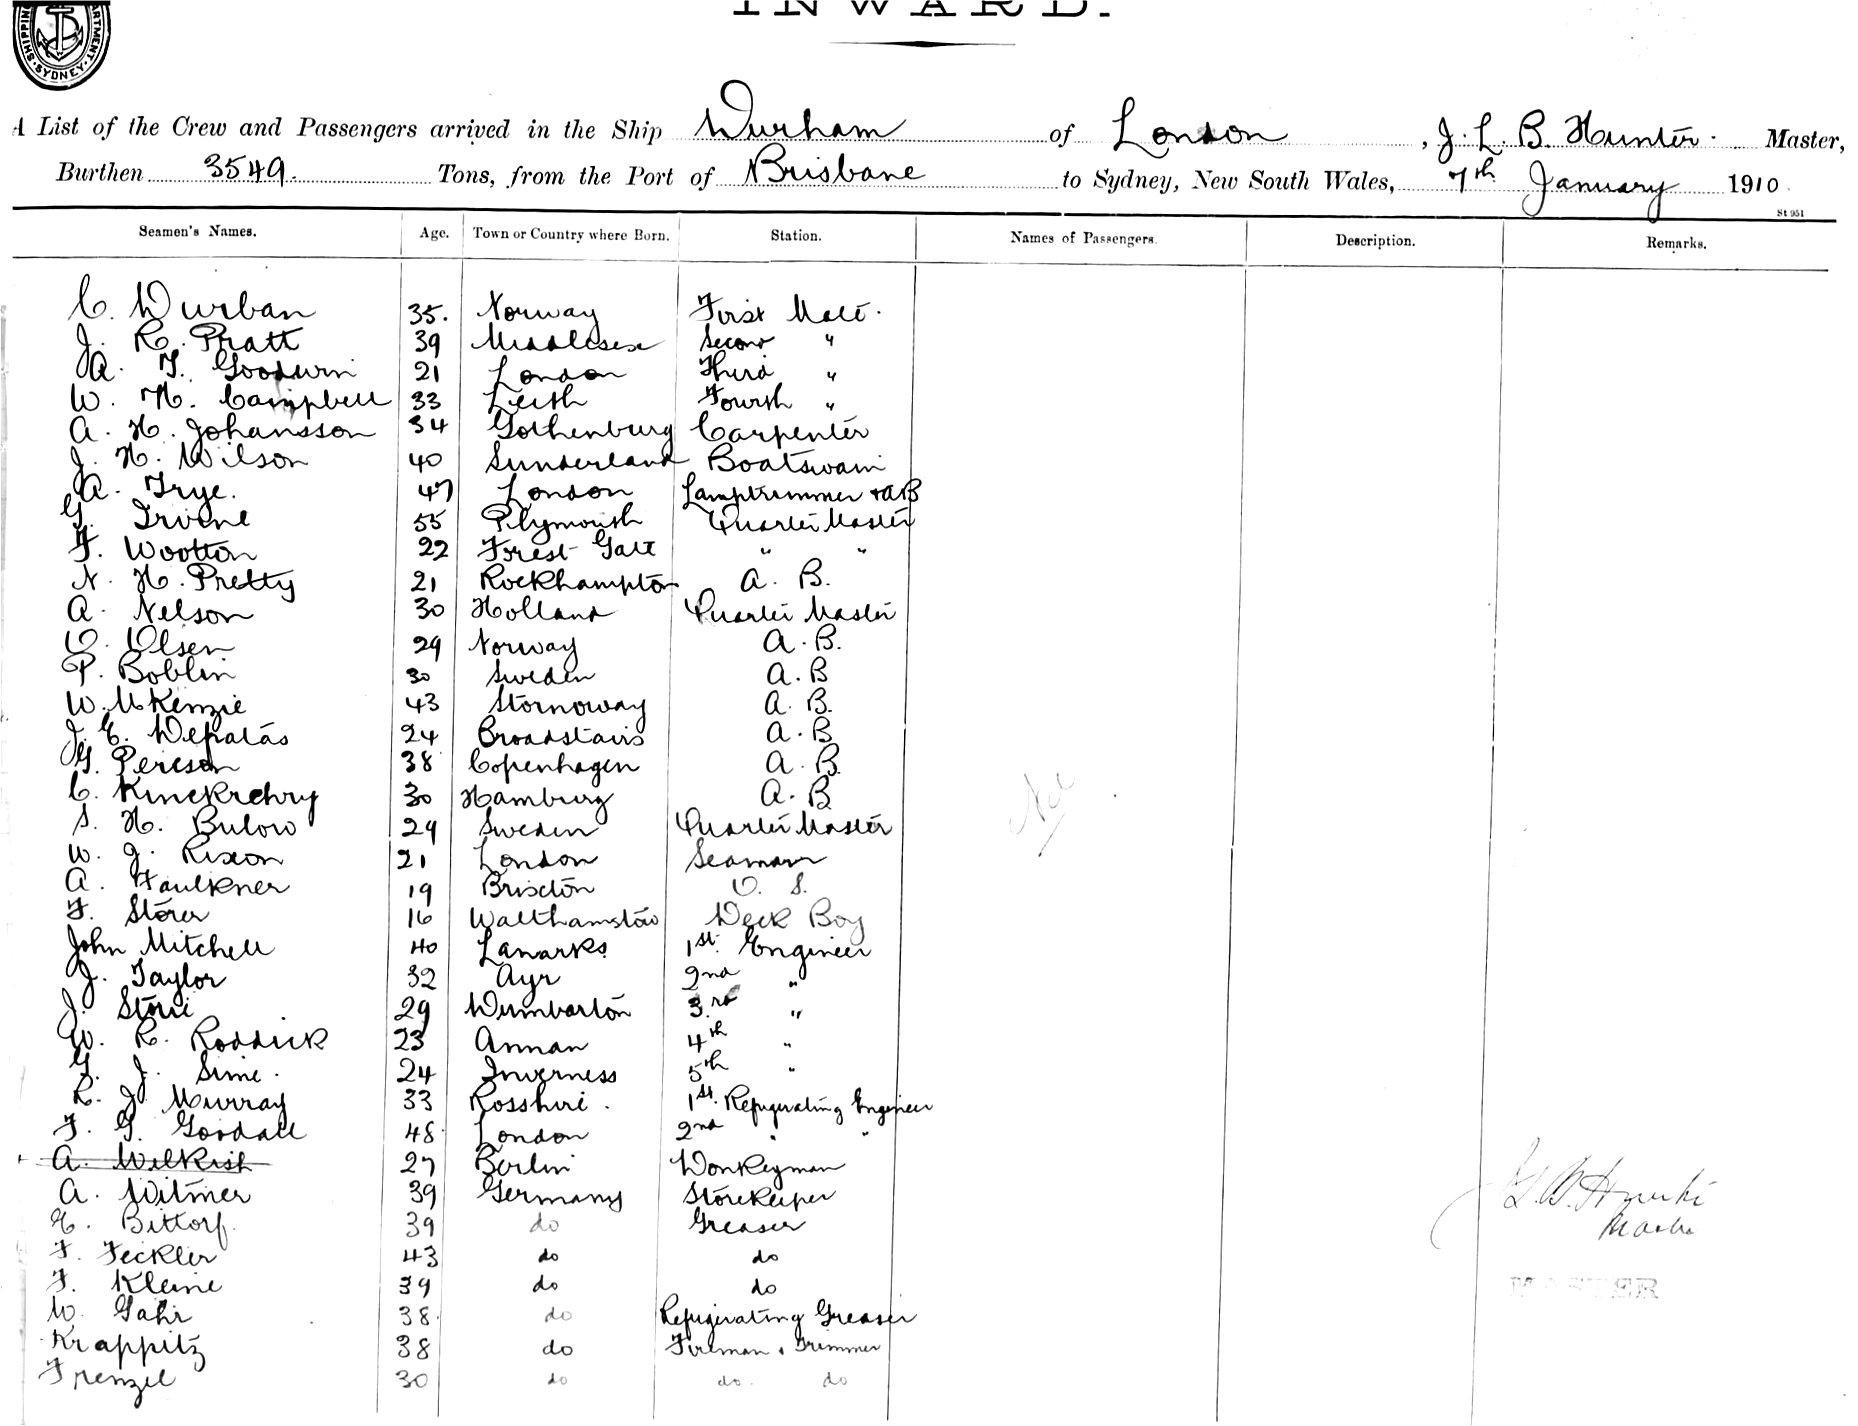 INWARD.
SHIPPING DEPARTMENT SYDNEY
A List of the Crew and Passengers arrived in the Ship Durham of London, J. L. B. Hunter. Master,
Burthen 3549. Tons, from the Port of Brisbane to Sydney, New South Wales, 7th January 1910.
St 951
Seamen's Names. Age. Town or Country where Born. Station. Names of Passengers. Description. Remarks.
C. Durban 35. Norway First Mate.
J. R. Pratt 39 Middlesex Second "
A. T. Goodwin 21 London Third "
W. H. Campbell 33 Leith Fourth "
A. H. Johansson 34 Gothenburg Carpenter
J. H. Wilson 40 Sunderland Boatswain
A. Frye. 47 London Lamptrimmer & AB
G. Irvine 55 Plymouth Quarter Master
F. Wootton 22 Forest Gate " "
N. H. Pretty 21 Rockhampton A. B.
A. Nelson 30 Holland Quarter Master
O. Olsen 29 Norway A. B.
P. Boblin 30 Sweden A. B
W. McKenzie 43 Stornoway A. B.
J. E. 24 Broadstairs A. B
G. Person 38 Copenhagen A. B.
C. 30 Hamburg A. B
S. H. Bulow 29 Sweden Quarter Master
W. J. Rixon 21 London Seaman
A. Faulkner 19 Brixton O. S.
F. Storer 16 Walthamstow Deck Boy
John Mitchell 40 Lanarks. 1st. Engineer
J. Taylor 32 Ayr 2nd "
J. Storie 29 Dumbarton 3rd "
W. R. Roddick 23 Annan 4th "
G. J. Sime. 24 Inverness 5th "
R. J. Murray 33 Rosshire. 1st. Refrigerating Engineer
F. G. Goodall 48 London 2nd " "
A. Welkish 27 Berlin Donkeyman
A. Witmer 39 Germany Storekeeper
E. Bittorf. 39 do Greaser
F. Feckler 43 do do
F. Kleine 39 do do
W. Gahr 38. do Refrigerating Greaser
Krappitz 38 do Fireman & Trimmer
Frenzel 30 do do. do
Nil
J. L. B. Hunter
Master
MASTER